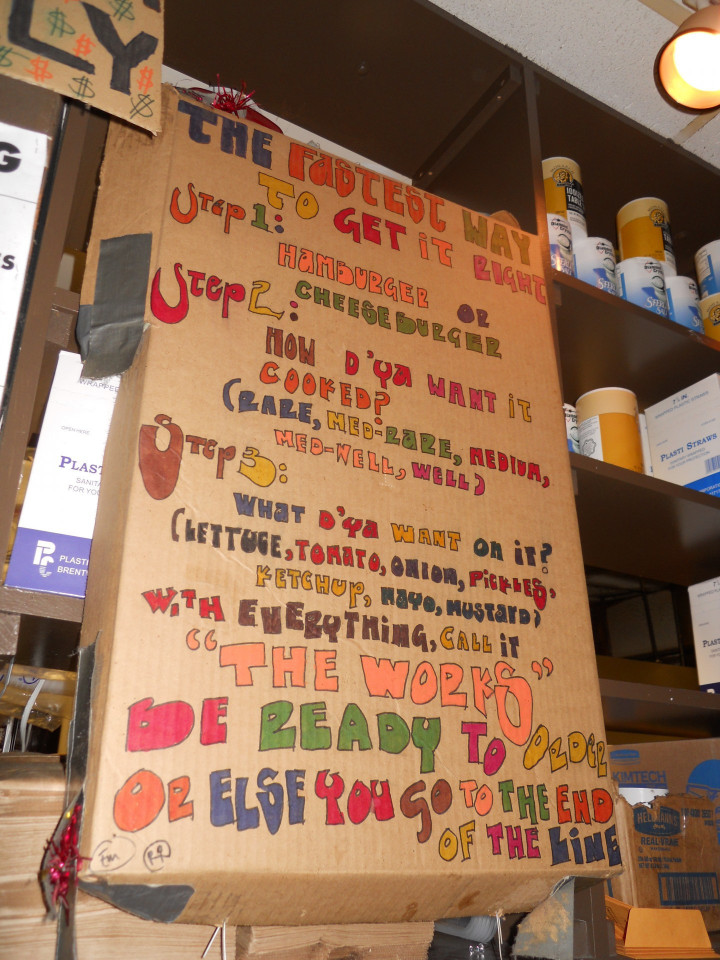 LY
$ $ $ $ $
G
S
THE FASTEST WAY
TO GET IT RIGHT
STEP 1:
HAMBURGER OR
CHEESEBURGER
STEP 2:
HOW D'YA WANT IT
COOKED?
(RARE, MED-RARE, MEDIUM,
MED-WELL, WELL)
STEP 3:
WHAT D'YA WANT ON IT?
(LETTUCE, TOMATO, ONION, PICKLES,
KETCHUP, MAYO, MUSTARD)
WITH EVERYTHING, CALL IT
"THE WORKS"
BE READY TO ORDER
OR ELSE YOU GO TO THE END
OF THE LINE
WRAPPED
PLAST
SANITA
FOR YO
PLASTI
BRENTW
PLASTI STRAWS
KIMTECH
REAL